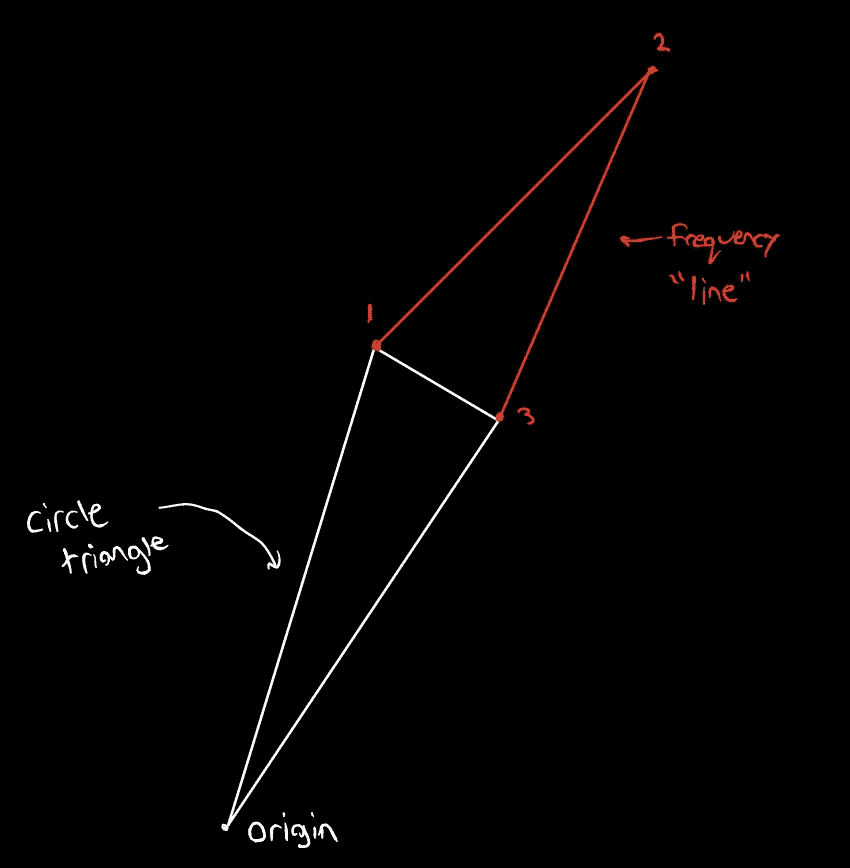 2
frequency
"line"
1
3
circle
triangle
origin